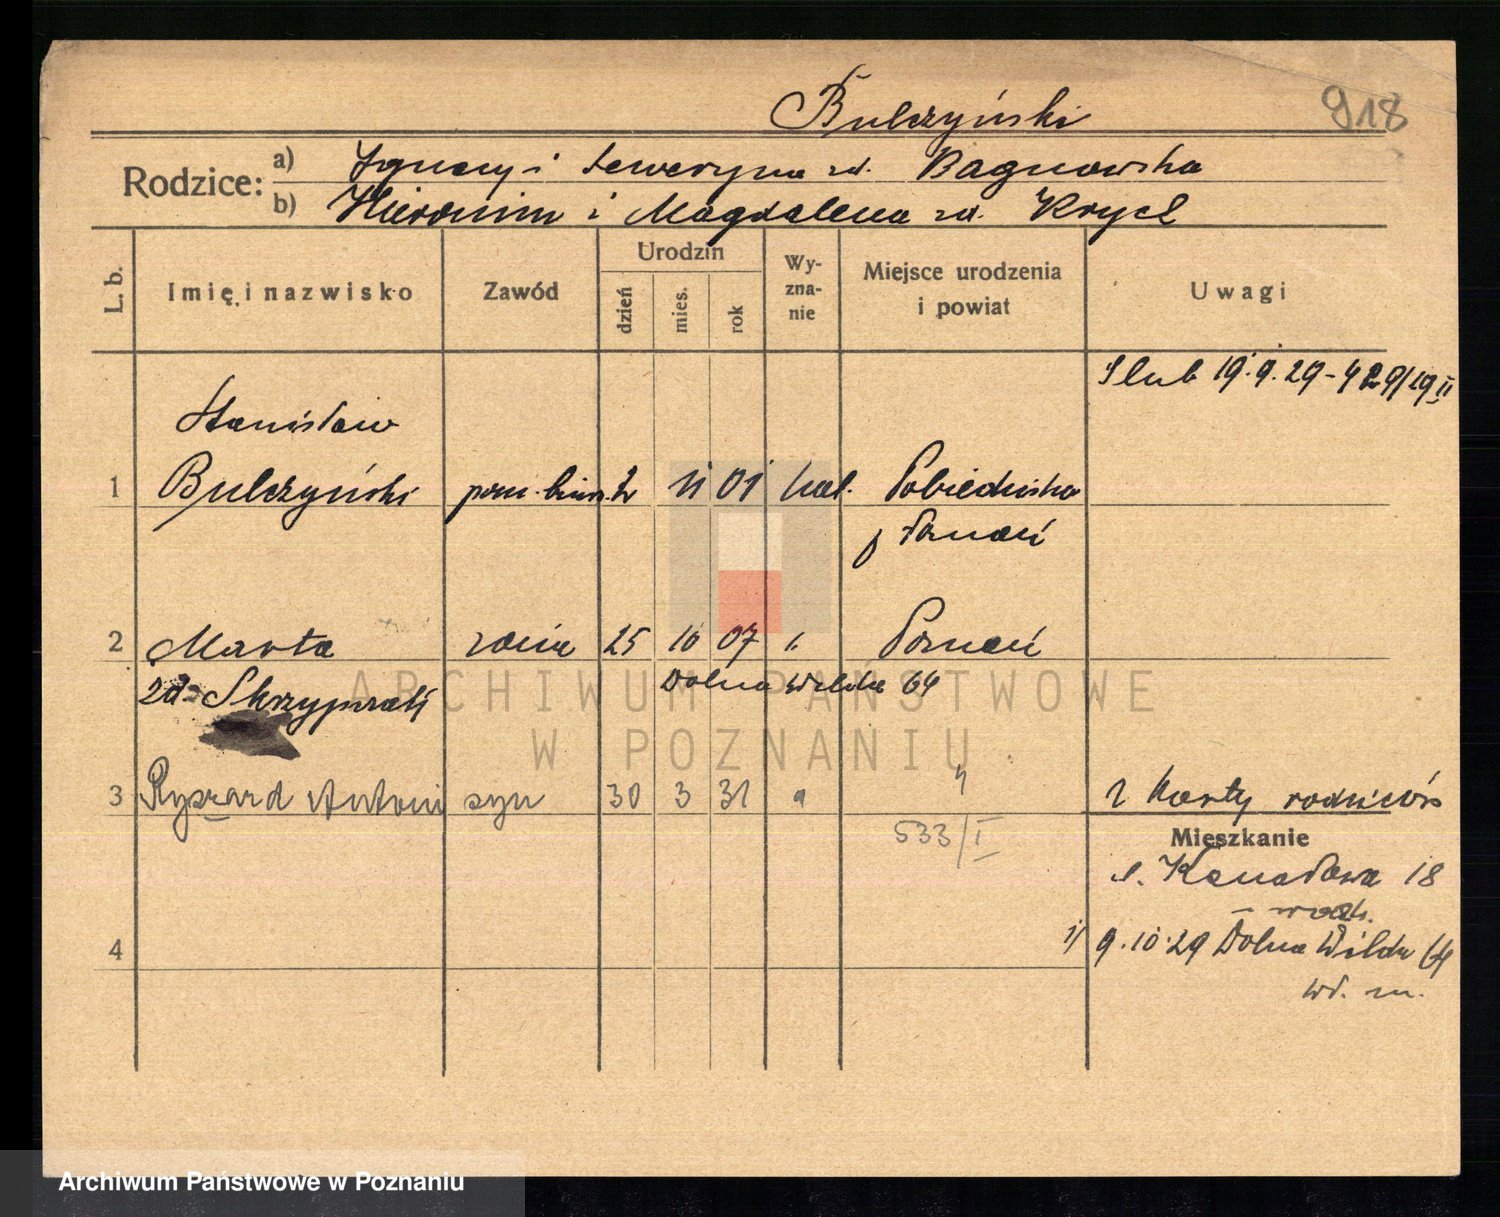 Bulczyński
918
Rodzice:
a) Ignacy i Seweryna zd. Bagnowska
b) Hieronim i Magdalena zd. Krych
L. b.
Imię i nazwisko
Zawód
Urodzin
dzień
mies.
rok
Wy-
zna-
nie
Miejsce urodzenia
i powiat
Uwagi
Ślub 19.9.29 - 429/29 II
Stanisław
1 Bulczyński pom. biur. 2 11 01 kat. Pobiedziska
p Poznań
2 Marta żona 25 10 07 " Poznań
zd. Dolna Wilda 64
3 Ryszard Antoni syn 30 3 31 " "
z karty rodziców
533/I
Mieszkanie
s. Kanałowa 18
4
1/ 9.10.29 Dolna Wilda 64
wł. m.
ARCHIWUM PAŃSTWOWE
W POZNANIU
Archiwum Państwowe w Poznaniu